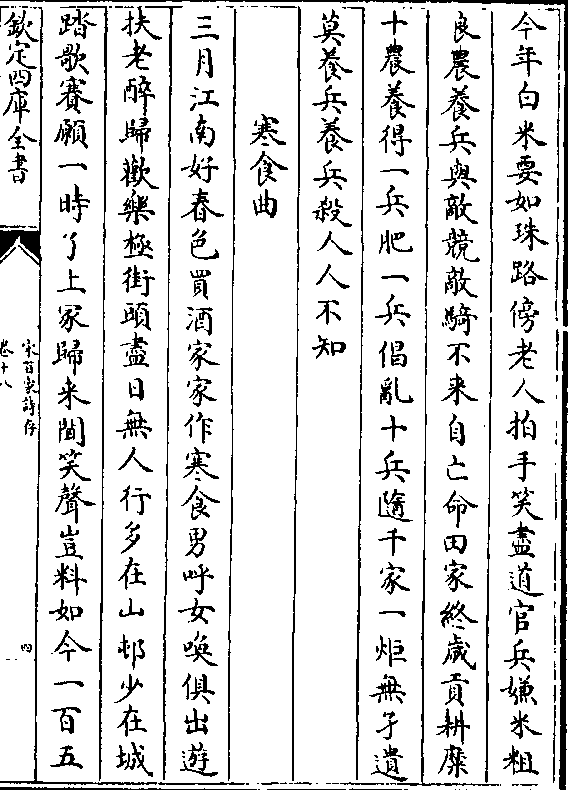 今年白米要如珠路傍老人拍手笑盡道官兵嫌米粗
良農養兵與敵競敵騎不來自亡命田家終歲貢耕糜
十農養得一兵肥一兵倡亂十兵隨千家一炬無孑遺
莫養兵養兵殺人人不知
寒食曲
三月江南好春色買酒家家作寒食男呼女喚俱出遊
扶老醉歸歡樂極街頭盡日無人行多在山邨少在城
踏歌賽願一時了上冢歸來聞笑聲豈料如今一百五
欽定四庫全書
宋百家詩存
卷十八
四